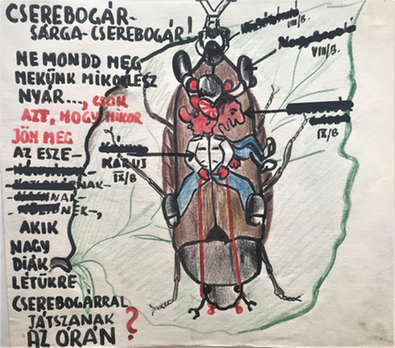 CSEREBOGÁR-
SÁRGA-CSEREBOGÁR!
NE MONDD MEG
NEKÜNK MIKOR LESZ
NYÁR..., CSAK
AZT, HOGY MIKOR
JÖN MEG
AZ ESZE-
NEK-,
AKIK
NAGY
DIÁK
LÉTÜKRE
CSEREBOGÁRRAL
JÁTSZANAK
AZ ÓRÁN?
III/B.
VIII/B.
IX/B
IX/B